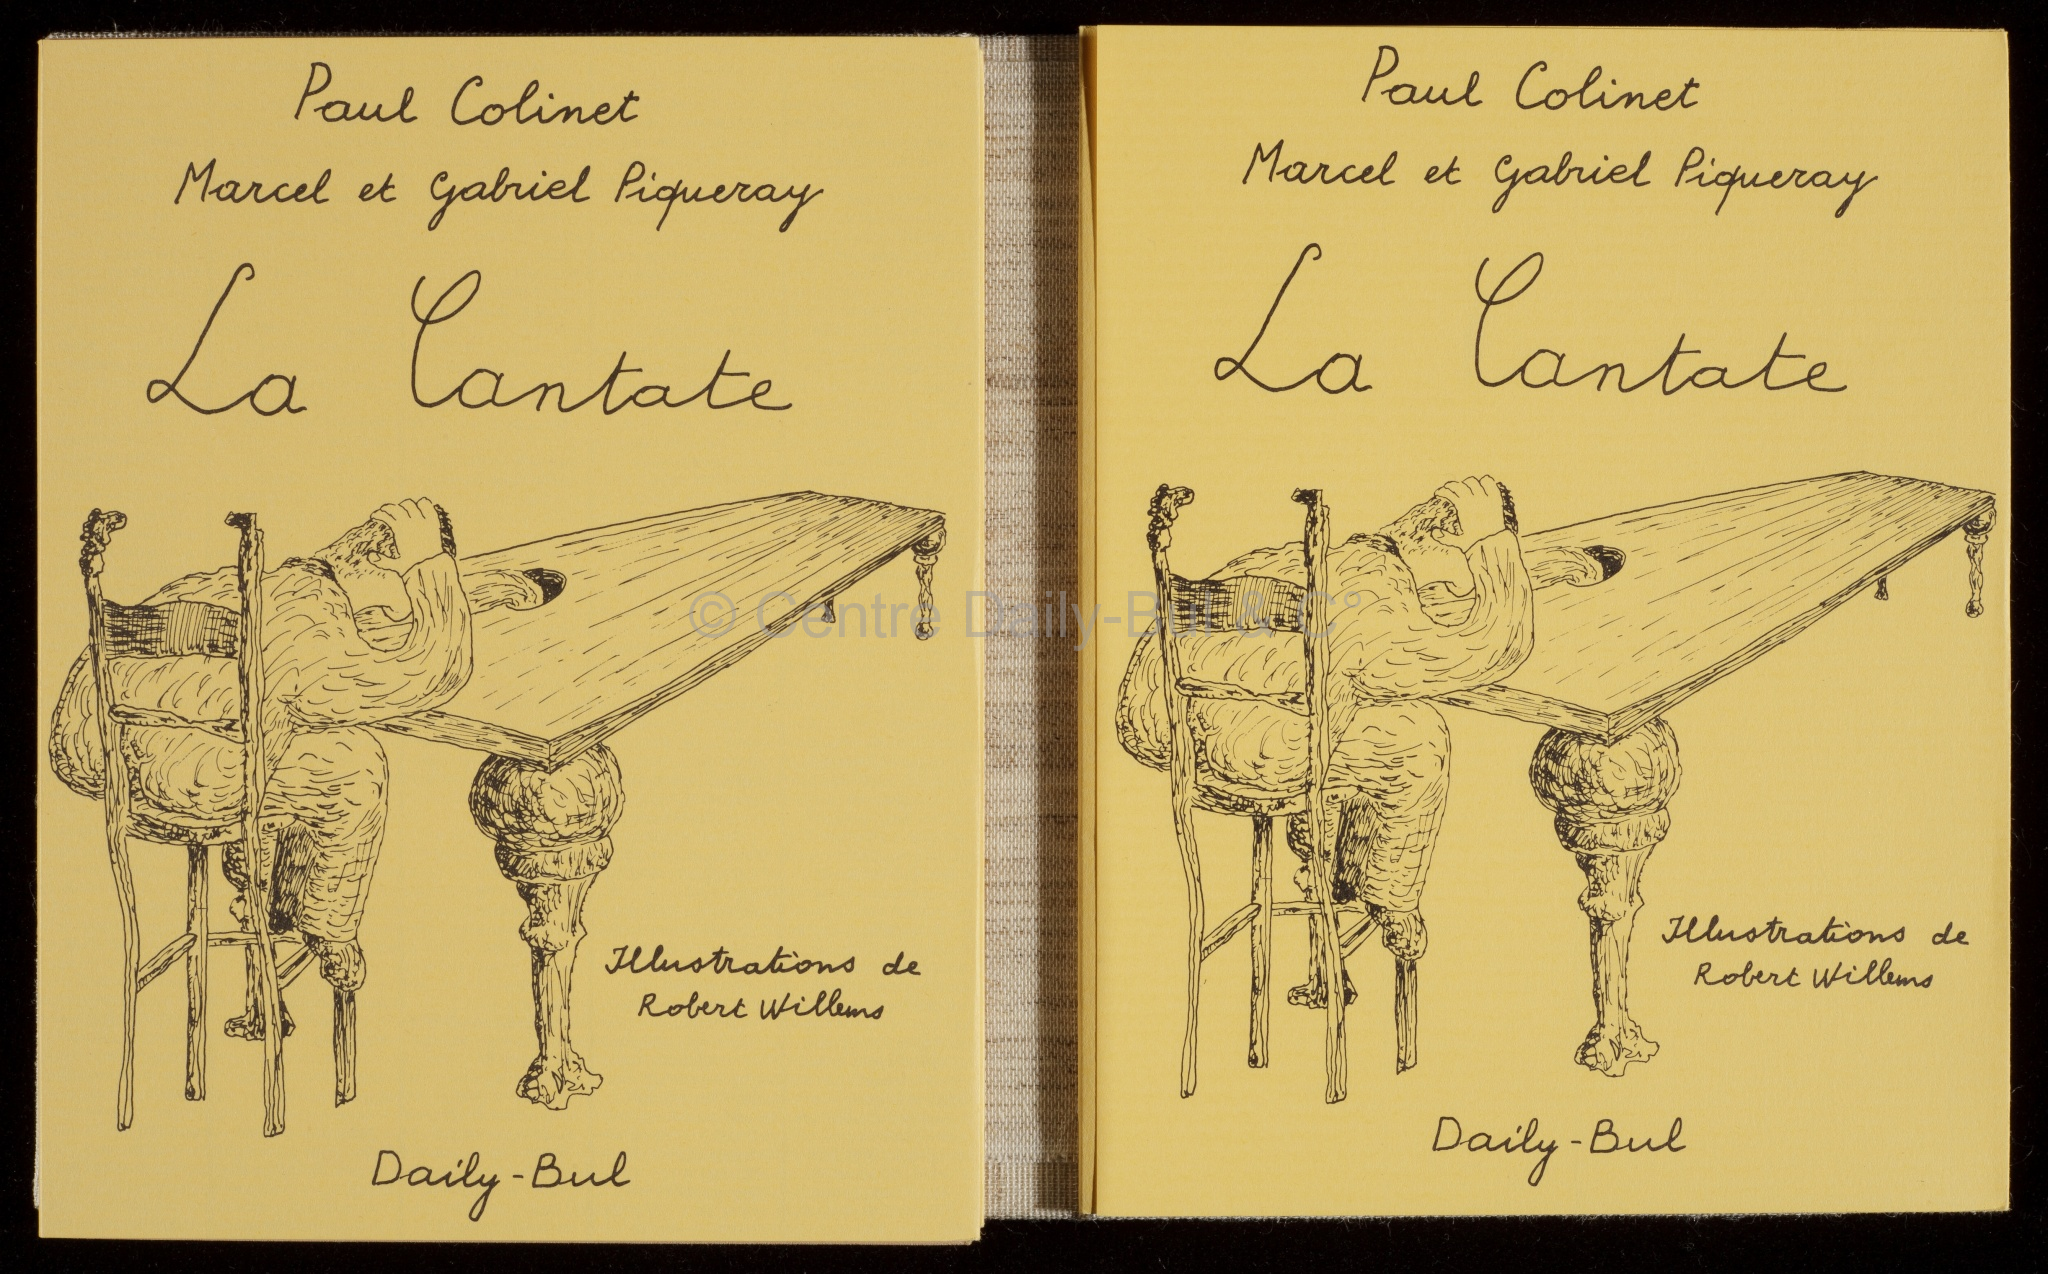 Paul Colinet
Marcel et Gabriel Piqueray
La Cantate
Illustrations de
Robert Willems
Daily-Bul
Paul Colinet
Marcel et Gabriel Piqueray
La Cantate
Illustrations de
Robert Willems
Daily-Bul
© Centre Daily-Bul & C°